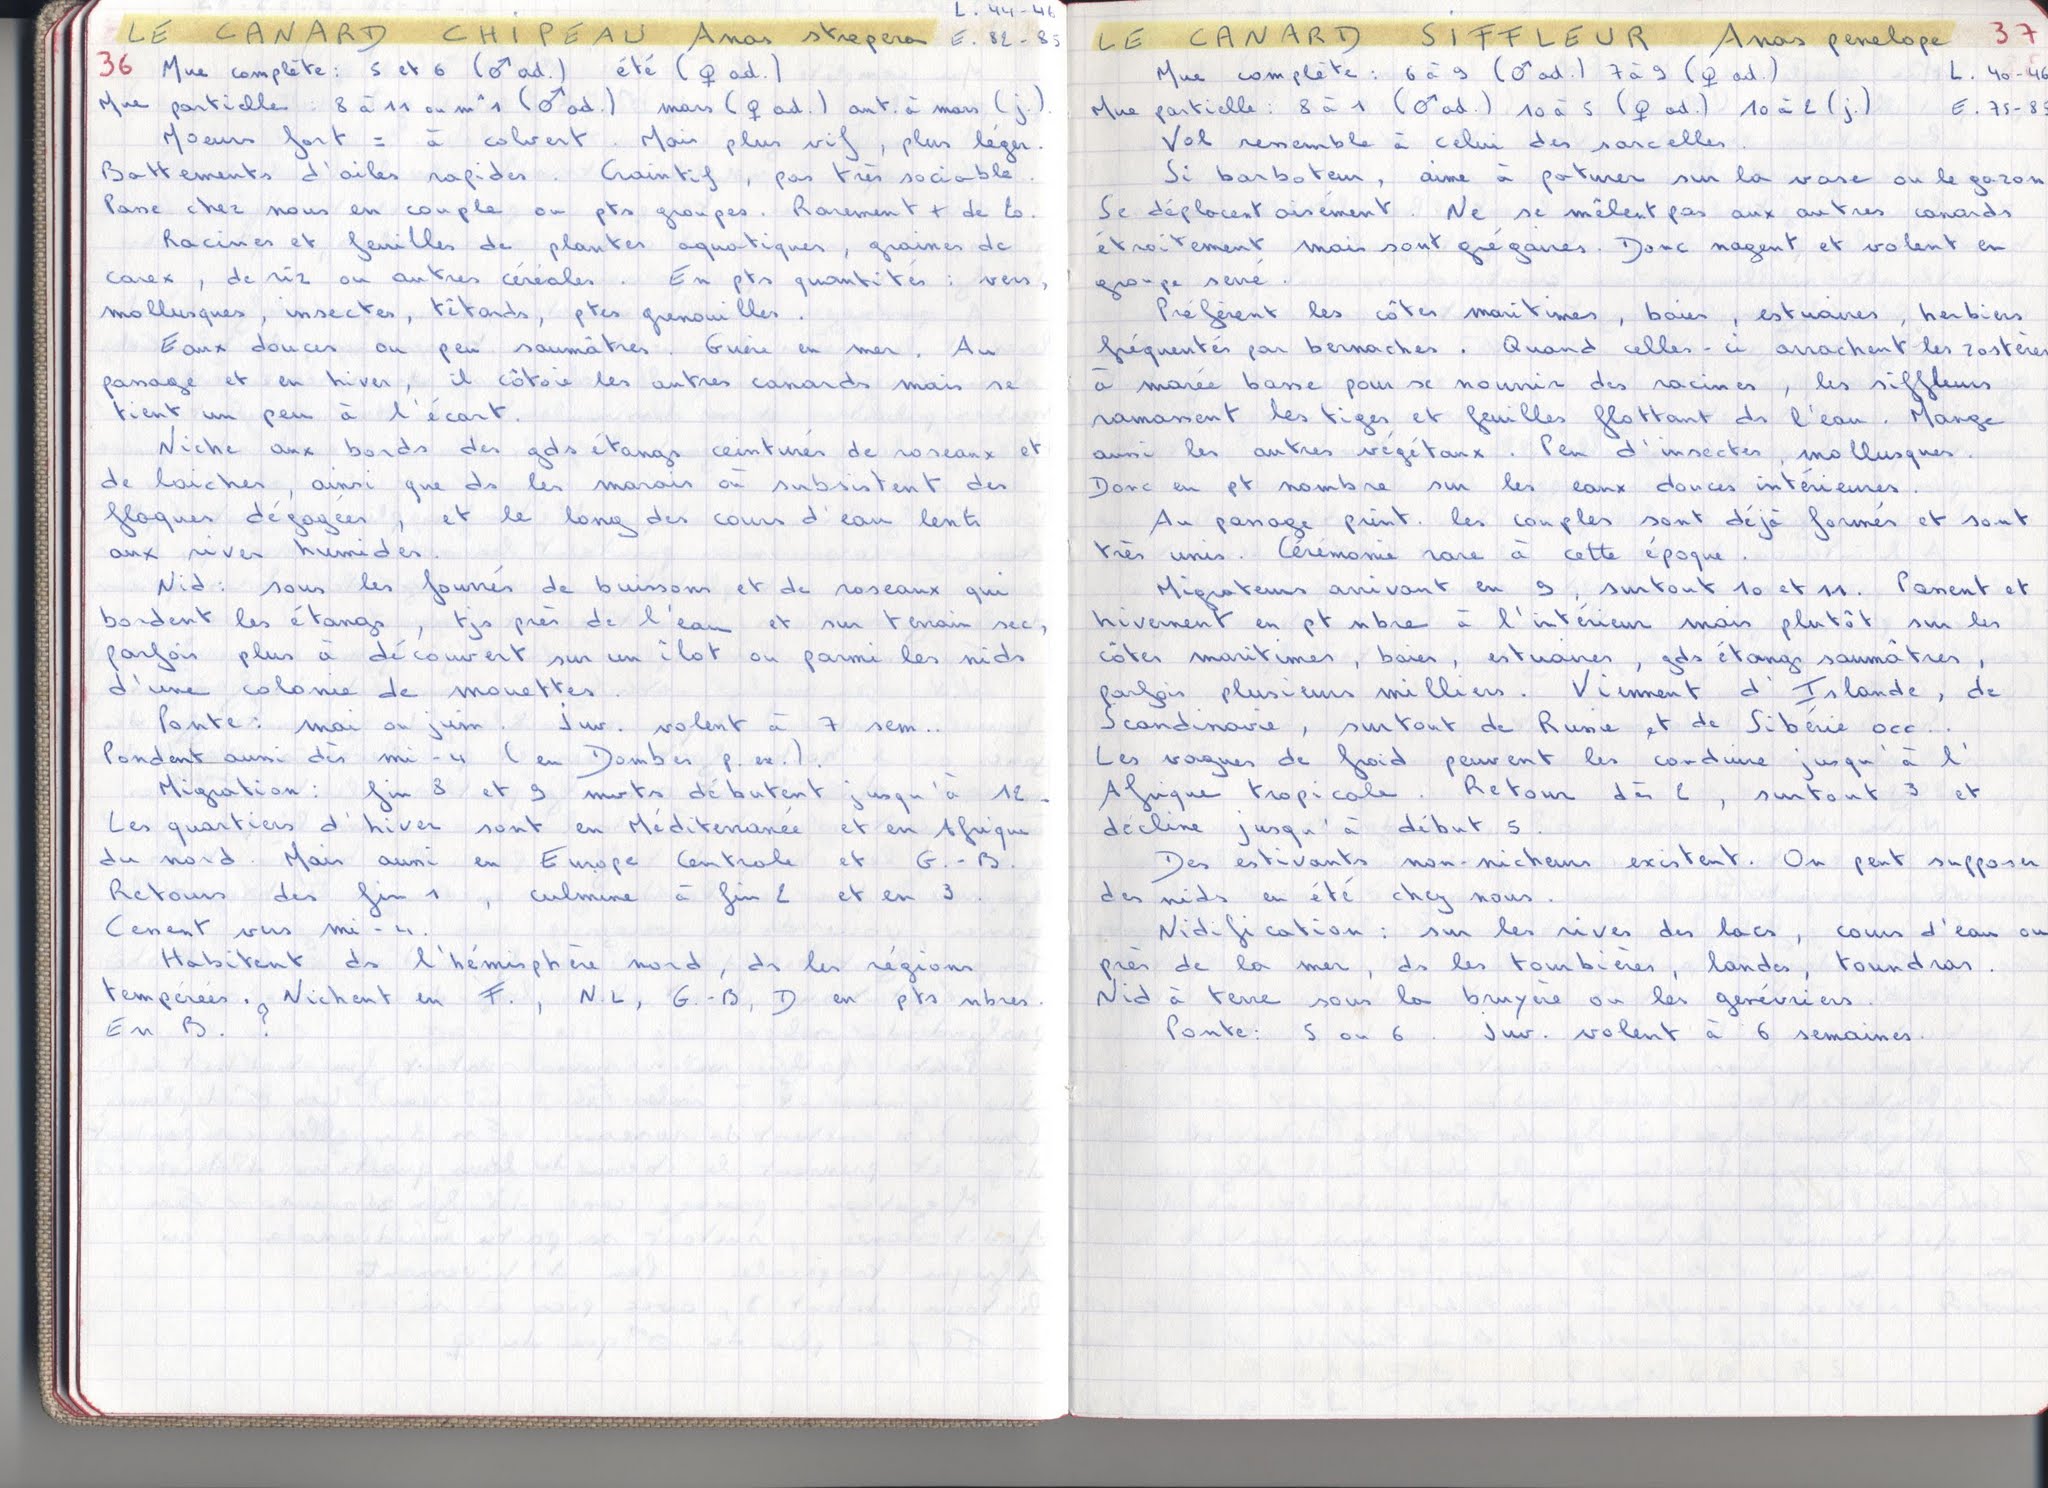 L. 44-46
LE CANARD CHIPEAU Anas strepera E. 82-85
36 Mue complète: 5 et 6 (♂ ad.) été (♀ ad.)
Mue partielle: 8 à 11 ou m^e 1 (♂ ad.) mars (♀ ad.) aut. à mars (j.).
Moeurs fort = à colvert. Mais plus vif, plus léger.
Battements d'ailes rapides. Craintif, pas très sociable.
Passe chez nous en couple ou pts groupes. Rarement + de 60.
Racines et feuilles de plantes aquatiques, graines de
carex, de riz ou autres céréales. En pts quantités: vers,
mollusques, insectes, têtards, ptes grenouilles.
Eaux douces ou peu saumâtres. Guère en mer. Au
passage et en hiver, il côtoie les autres canards mais se
tient un peu à l'écart.
Niche aux bords des gds étangs ceinturés de roseaux et
de laiches, ainsi que ds les marais où subsistent des
flaques dégagées, et le long des cours d'eau lents
aux rives humides.
Nid: sous les fourrés de buissons et de roseaux qui
bordent les étangs, tjs près de l'eau et sur terrain sec,
parfois plus à découvert sur un îlot ou parmi les nids
d'une colonie de mouettes.
Ponte: mai ou juin. Juv. volent à 7 sem..
Pondent aussi dès mi-4 (en Dombes p. ex.).
Migration: fin 8 et 9 mvts débutent jusqu'à 12.
Les quartiers d'hiver sont en Méditerranée et en Afrique
du nord. Mais aussi en Europe Centrale et G.-B.
Retours des fin 1, culmine à fin 2 et en 3.
Cessent vers mi-4.
Habitent ds l'hémisphère nord, ds les régions
tempérées. Nichent en F., N.L, G.-B, D en pts nbres.
En B. ?
LE CANARD SIFFLEUR Anas penelope 37
Mue complète: 6 à 9 (♂ ad.) 7 à 9 (♀ ad.) L. 40-46
Mue partielle: 8 à 1 (♂ ad.) 10 à 5 (♀ ad.) 10 à 2 (j.) E. 75-85
Vol ressemble à celui des sarcelles.
Si barboteur, aime à paturer sur la vase ou le gazon
Se déplacent aisément. Ne se mêlent pas aux autres canards
étroitement mais sont grégaires. Donc nagent et volent en
groupe serré.
Préfèrent les côtes maritimes, baies, estuaires, herbiers
fréquentés par bernaches. Quand celles-ci arrachent les zostères
à marée basse pour se nourrir des racines, les siffleurs
ramassent les tiges et feuilles flottant ds l'eau. Mange
aussi les autres végétaux. Peu d'insectes, mollusques.
Donc en pt nombre sur les eaux douces intérieures.
Au passage print. les couples sont déjà formés et sont
très unis. Cérémonie rare à cette époque.
Migrateurs arrivant en 9, surtout 10 et 11. Passent et
hivernent en pt nbre à l'intérieur mais plutôt sur les
côtes maritimes, baies, estuaires, gds étangs saumâtres,
parfois plusieurs milliers. Viennent d'Islande, de
Scandinavie, surtout de Russie et de Sibérie occ..
Les vagues de froid peuvent les conduire jusqu'à l'
Afrique tropicale. Retour dès 2, surtout 3 et
décline jusqu'à début 5.
Des estivants non-nicheurs existent. On peut supposer
des nids en été chez nous.
Nidification: sur les rives des lacs, cours d'eau ou
près de la mer, ds les tourbières, landes, toundras.
Nid à terre sous la bruyère ou les genévriers.
Ponte: 5 ou 6. Juv. volent à 6 semaines.